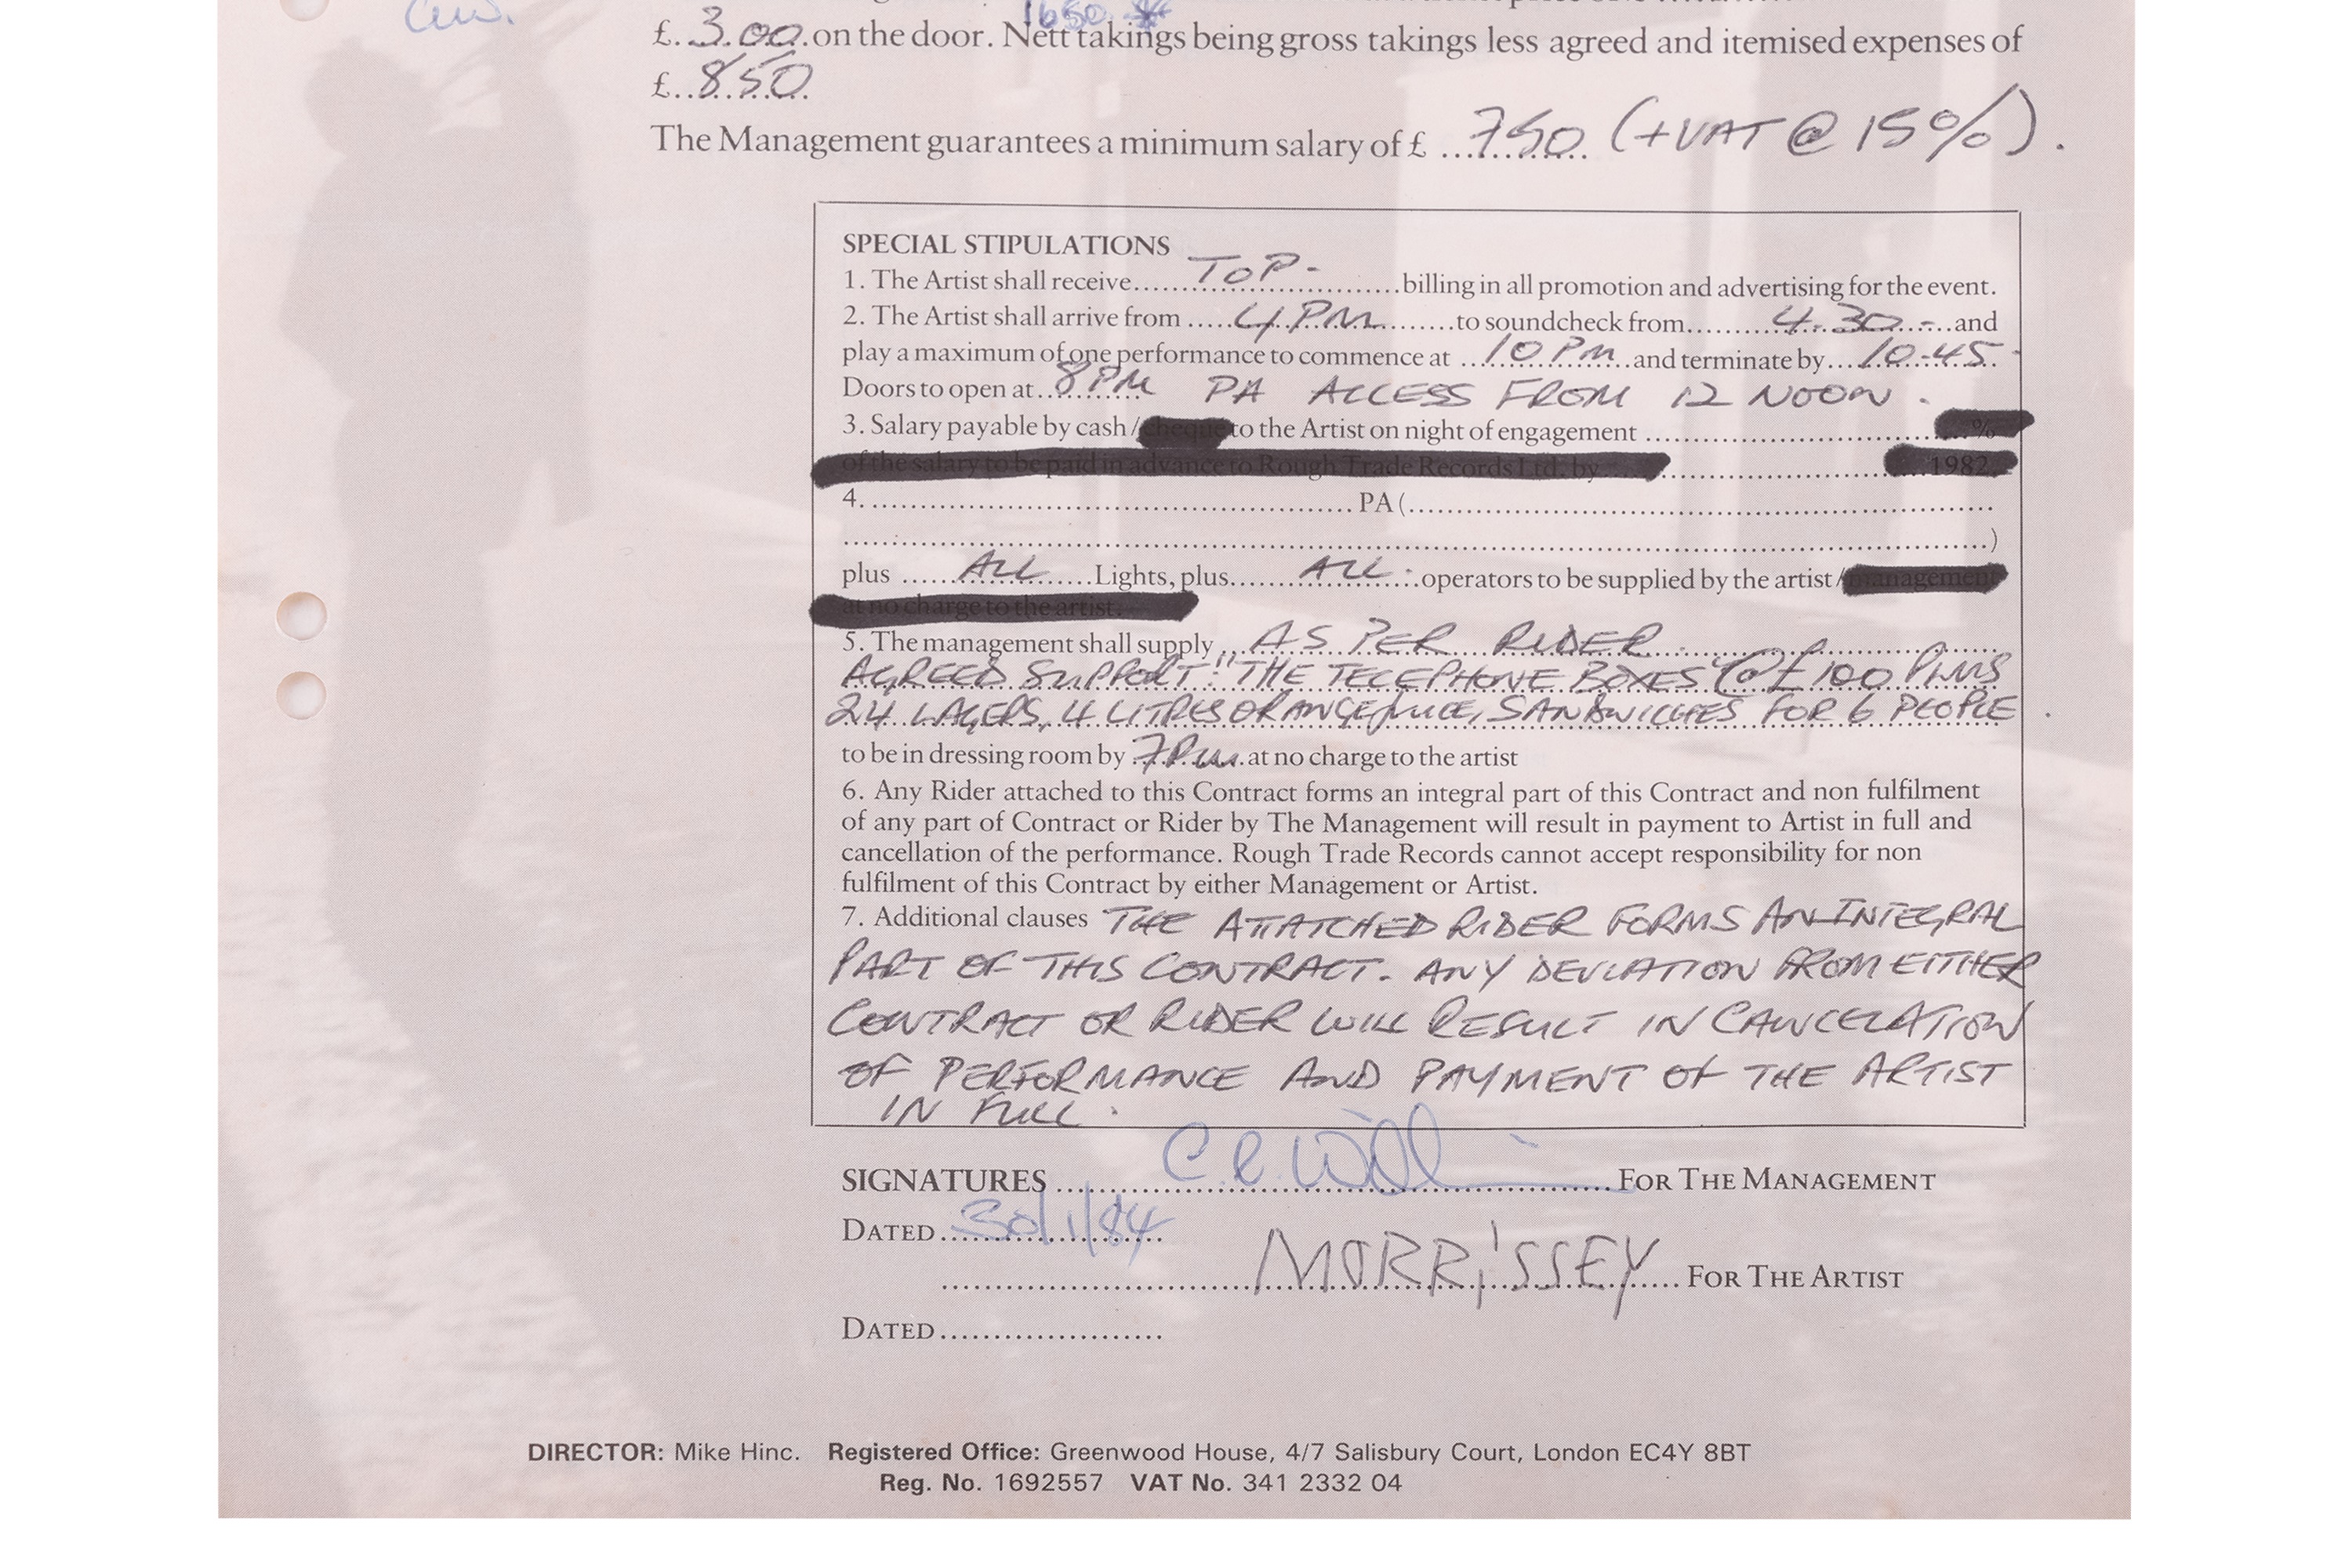 1650
£..3.00..on the door. Nett takings being gross takings less agreed and itemised expenses of
£..850
The Management guarantees a minimum salary of £ ...750 (+VAT @ 15%).
SPECIAL STIPULATIONS
1. The Artist shall receive......TOP-......billing in all promotion and advertising for the event.
2. The Artist shall arrive from .....4PM.......to soundcheck from.........4.30.-...and
play a maximum of one performance to commence at ..10PM..and terminate by...10.45
Doors to open at..8PM PA ACCESS FROM 12 NOON.
3. Salary payable by cash/cheque to the Artist on night of engagement ........................%
of the salary to be paid in advance to Rough Trade Records Ltd. by........................1982
4. ........................PA (........................
........................)
plus .....ALL....Lights, plus......ALL..operators to be supplied by the artist/management
at no charge to the artist.
5. The management shall supply ..AS PER RIDER..
AGREED SUPPORT: "THE TELEPHONE BOXES" @ £100 PLUS
24 LAGERS, 4 LITRES ORANGE JUICE, SANDWICHES FOR 6 PEOPLE.
to be in dressing room by .7PM..at no charge to the artist
6. Any Rider attached to this Contract forms an integral part of this Contract and non fulfilment
of any part of Contract or Rider by The Management will result in payment to Artist in full and
cancellation of the performance. Rough Trade Records cannot accept responsibility for non
fulfilment of this Contract by either Management or Artist.
7. Additional clauses THE ATTATCHED RIDER FORMS AN INTEGRAL
PART OF THIS CONTRACT. ANY DEVIATION FROM EITHER
CONTRACT OR RIDER WILL RESULT IN CANCELATION
OF PERFORMANCE AND PAYMENT OF THE ARTIST
IN FULL.
SIGNATURES ........................FOR THE MANAGEMENT
DATED ..30/1/84..
............MORRISSEY.... FOR THE ARTIST
DATED.....................
DIRECTOR: Mike Hinc. Registered Office: Greenwood House, 4/7 Salisbury Court, London EC4Y 8BT
Reg. No. 1692557 VAT No. 341 2332 04